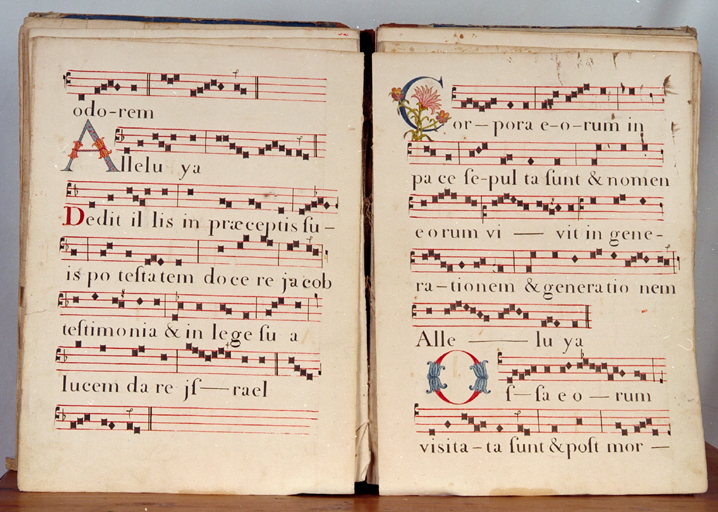 odo-rem
Allelu ya
Dedit il lis in præceptis ſu-
is po teſta tem do ce re ja cob
teſtimonia & in lege ſu a
lucem da re jſ-rael
Cor-pora e-o-rum in
pa ce ſe-pul ta ſunt & nomen
eorum vi — vit in gene-
ra-tionem & generatio nem
Alle — lu ya
Oſ-ſa e o — rum
viſita-ta ſunt & poſt mor —